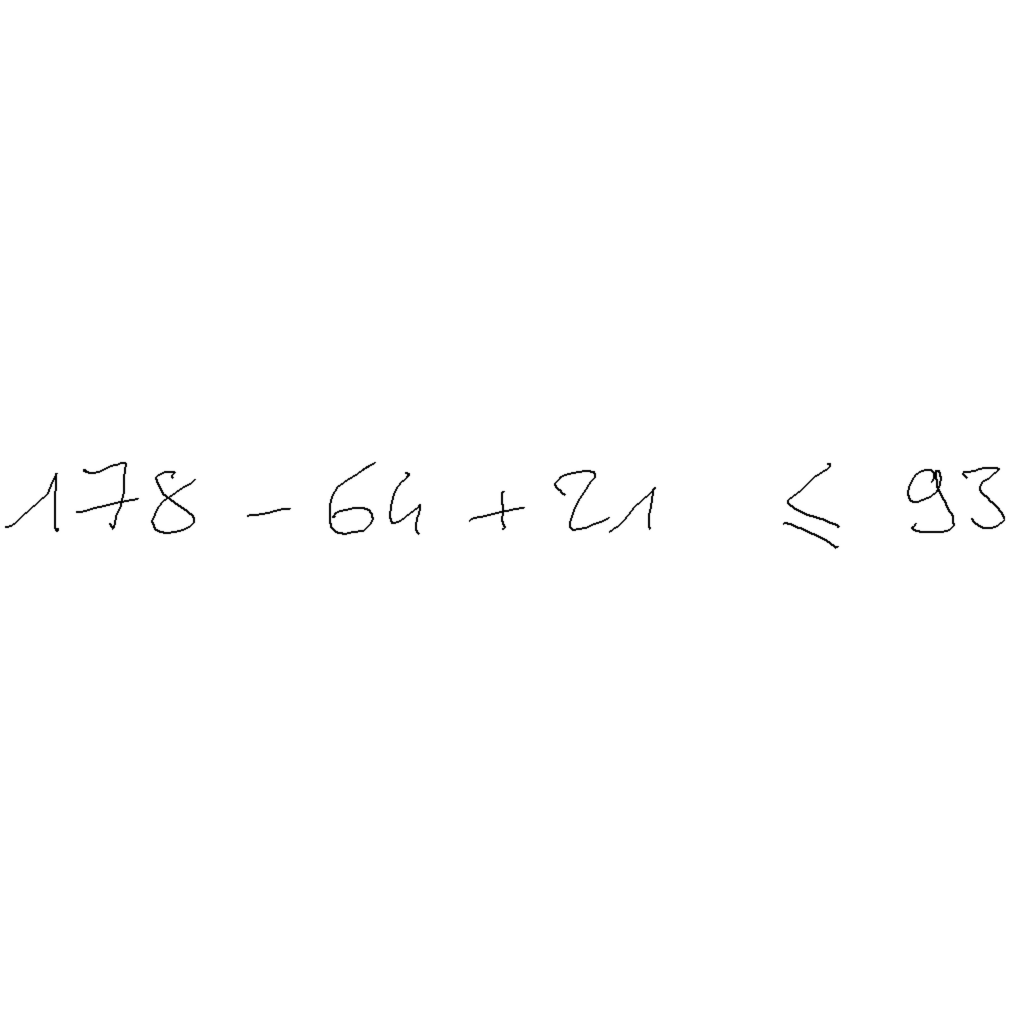 178 - 64 + 21 ≤ 93